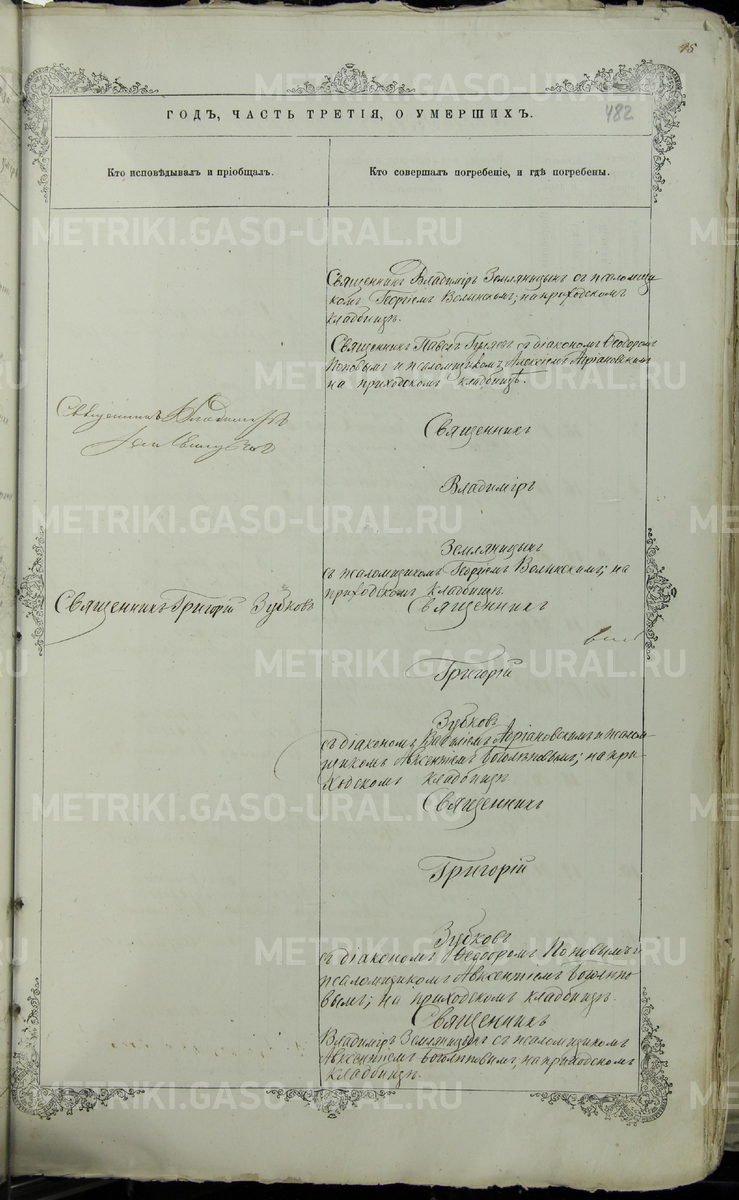 45
482
ГОДЪ, ЧАСТЬ ТРЕТІЯ, О УМЕРШИХЪ.
Кто исповѣдывалъ и пріобщалъ.
Кто совершалъ погребеніе, и гдѣ погребены.
Священникъ Владиміръ Земляницынъ съ псаломщи-
комъ Георгіемъ Волынскимъ; на приходскомъ
кладбищѣ.
Священникъ Павелъ съ діакономъ Ѳеодоромъ
Поповымъ и псаломщикомъ Алексѣемъ Агріановскимъ
на приходскомъ кладбищѣ.
Священникъ Владиміръ
Земляницынъ
Священникъ
Владиміръ
Земляницынъ
съ псаломщикомъ Георгіемъ Волынскимъ; на
приходскомъ кладбищѣ.
Священникъ Григорій Зубковъ
Священникъ
Григорій
Зубковъ
съ діакономъ Агріановскимъ и псалом-
щикомъ Авксентіемъ Боголѣповымъ; на при-
ходскомъ кладбищѣ.
Священникъ
Григорій
Зубковъ
съ діакономъ Ѳеодоромъ Поповымъ и
псаломщикомъ Авксентіемъ Боголѣпо-
вымъ; на приходскомъ кладбищѣ.
Священникъ
Владиміръ Земляницынъ съ псаломщикомъ
Авксентіемъ Боголѣповымъ, на приходскомъ
кладбищѣ.
METRIKI.GASO-URAL.RU